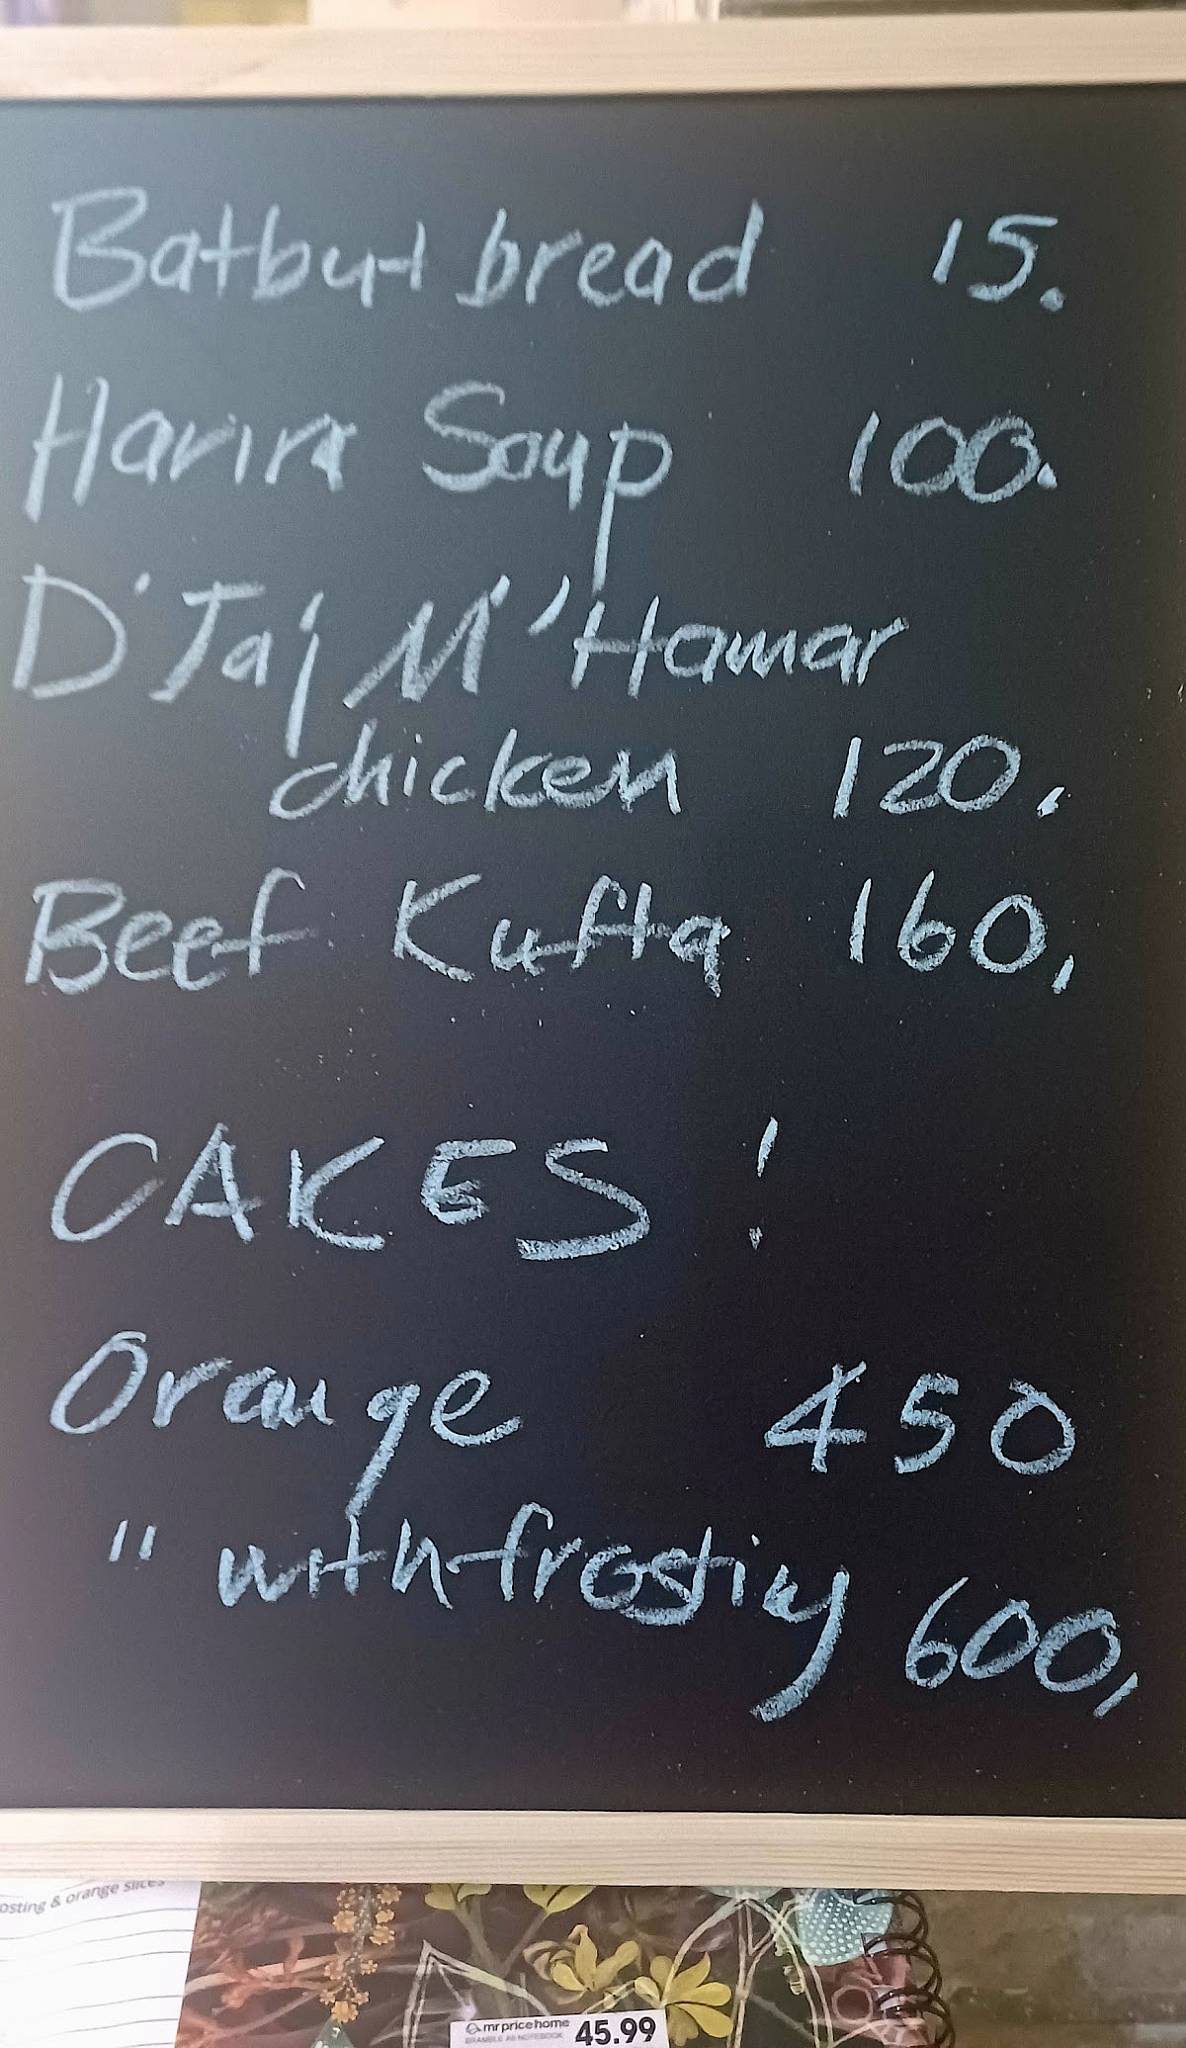 Batbut bread 15.
Harira Soup 100.
D'Taj M'Hamar
chicken 120.
Beef Kufta 160,
CAKES!
Orange 450
" with frosting 600,
osting & orange slices
mrpricehome 45.99
BRAMBLE A5 NOTEBOOK